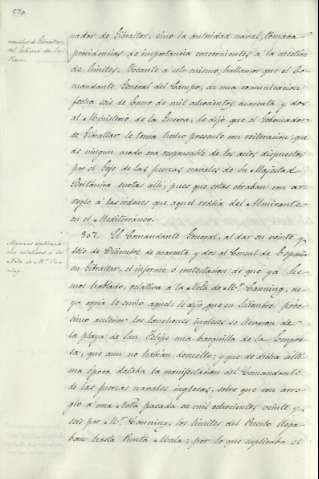 nador de Gibraltar, sino la autoridad naval, tomaba
providencias de importancia concernientes a la cuestion
de límites. Tocante a esto mismo, hallamos que el Co-
mandante General del Campo, en una comunicacion
fecha seis de Enero de mil ochocientos cuarenta y dos
al Ministerio de la Guerra, le dijo que el Gobernador
de Gibraltar le tenia hecho presente con reiteracion que
de ningun modo era responsable de los actos dispuestos
por el Gefe de las fuerzas navales de Su Majestad
Británica surtas allí; pues que estas obraban con ar-
reglo a las órdenes que aquel recibia del Almirante
en el Mediterráneo.
307. El Comandante General, al dar en veinte y
seis de Diciembre de cuarenta y dos al Consul de España
en Gibraltar, el informe ó contestacion de que ya he-
mos hablado, relativa a la Nota de Mr. Canning, cu-
ya copia le envió aquel, le dijo que en Setiembre próc-
simo anterior los Ingleses se llevaron de
la playa de San Felipe una barquilla de la Empre-
sa, que aun no habian devuelto; y que de dicha últi-
ma época databa la manifestacion del Comandante
de las fuerzas navales inglesas, sobre que con arre-
glo a una Nota pasada en mil ochocientos veinte y
seis por Mr. Canning, los límites del Puerto llega-
ban hasta Punta Mala; por lo que suplicaba el